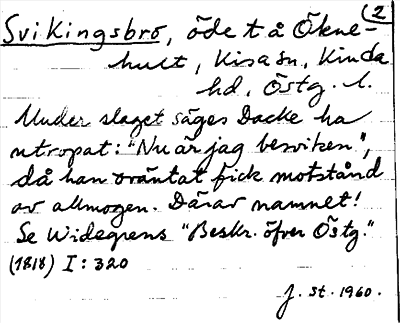 (2
Svikingsbro, öde t å Ökne-
hult, Kisa sn., Kinda
hd, Östg. l.
Under slaget säges Dacke ha
utropat: "Nu är jag besviken",
då han oväntat fick motstånd
av allmogen. Därav namnet!
Se Widegrens "Beskr. öfver Östg."
(1818) I: 320
J. St. 1960.